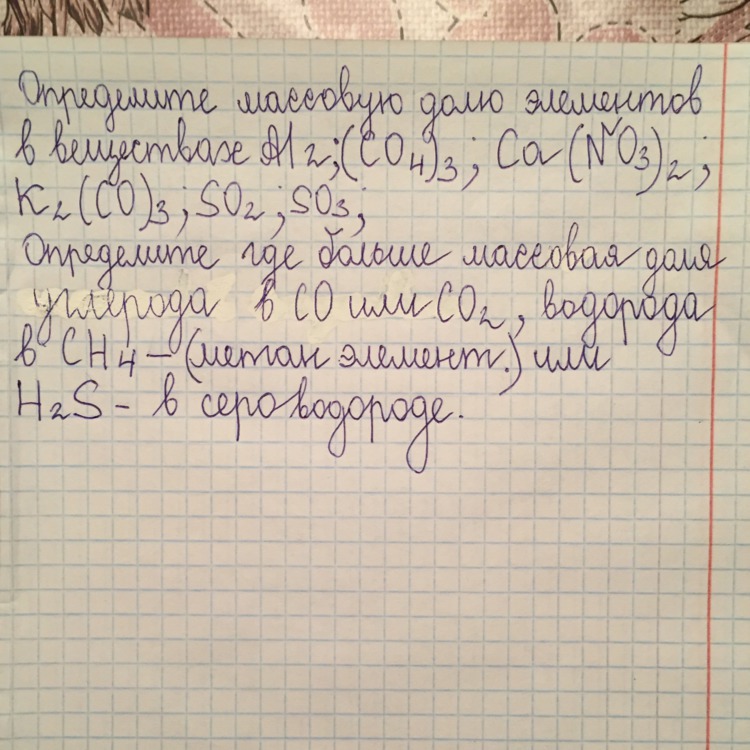 Определите массовую долю элементов
в веществах Al2;(CO4)3; Ca(NO3)2;
K2(CO)3; SO2; SO3;
Определите где больше массовая доля
углерода в CO или CO2, водорода
в CH4 – (метан элемент.) или
H2S – в сероводороде.